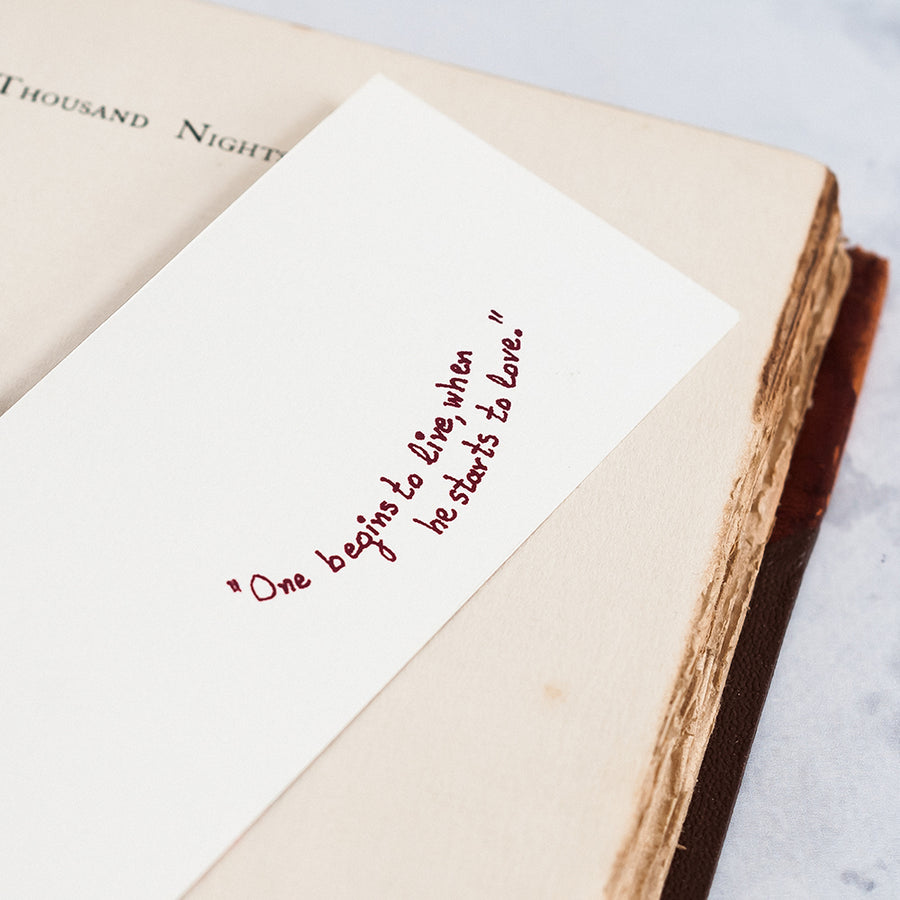 Thousand Nights
"One begins to live, when
he starts to love."